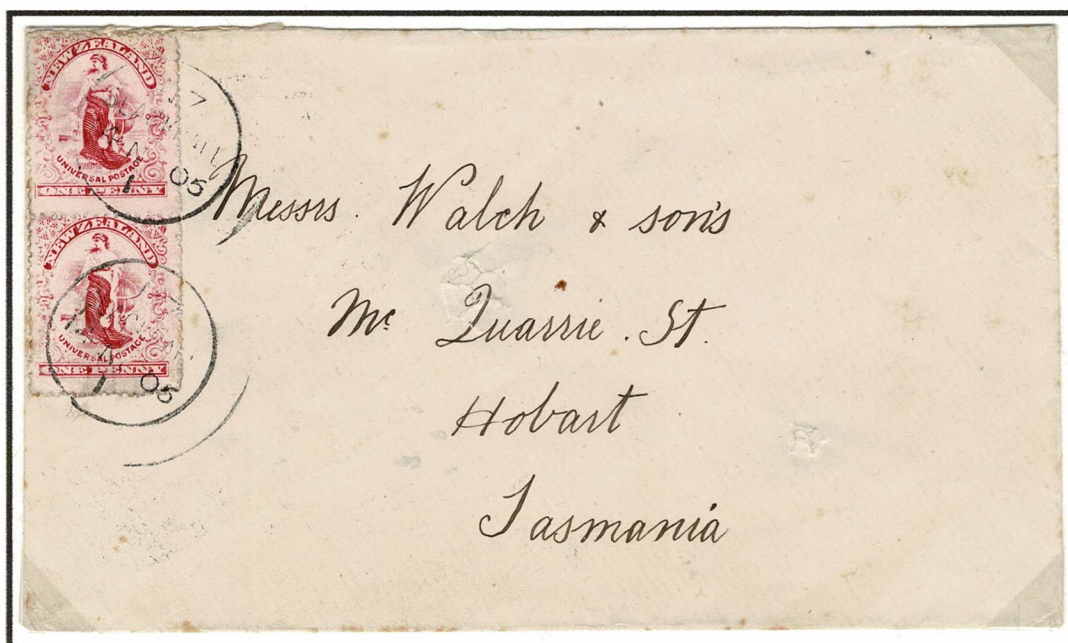 NEW ZEALAND
UNIVERSAL POSTAGE
ONE PENNY
1 05
NEW ZEALAND
UNIVERSAL POSTAGE
ONE PENNY
1 05
Messrs. Walch & son's
Mc Quarrie. St.
Hobart
Tasmania